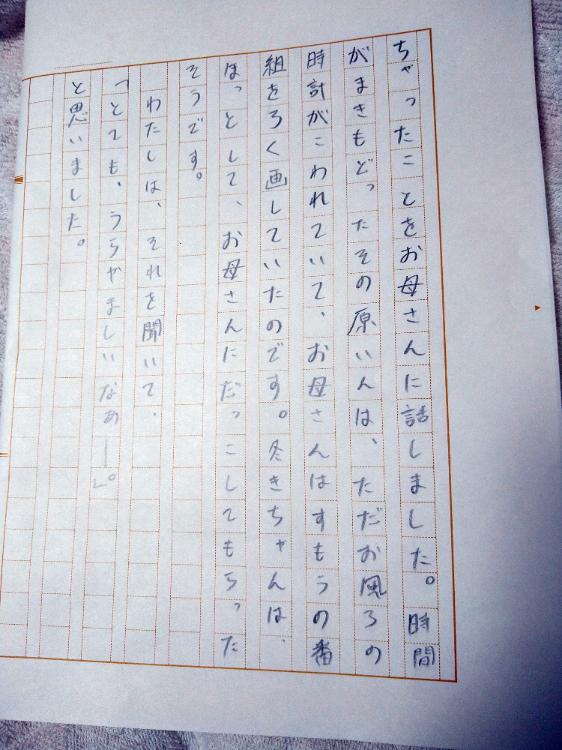 ちゃったことをお母さんに話しました。時間
がまきもどったその原いんは、ただお風ろの
時計がこわれていて、お母さんはすもうの番
組をろく画していたのです。冬きちゃんは、
ほっとして、お母さんにだっこしてもらった
そうです。
わたしは、それを聞いて、
「とても、うらやましいなぁー」。
と思いました。